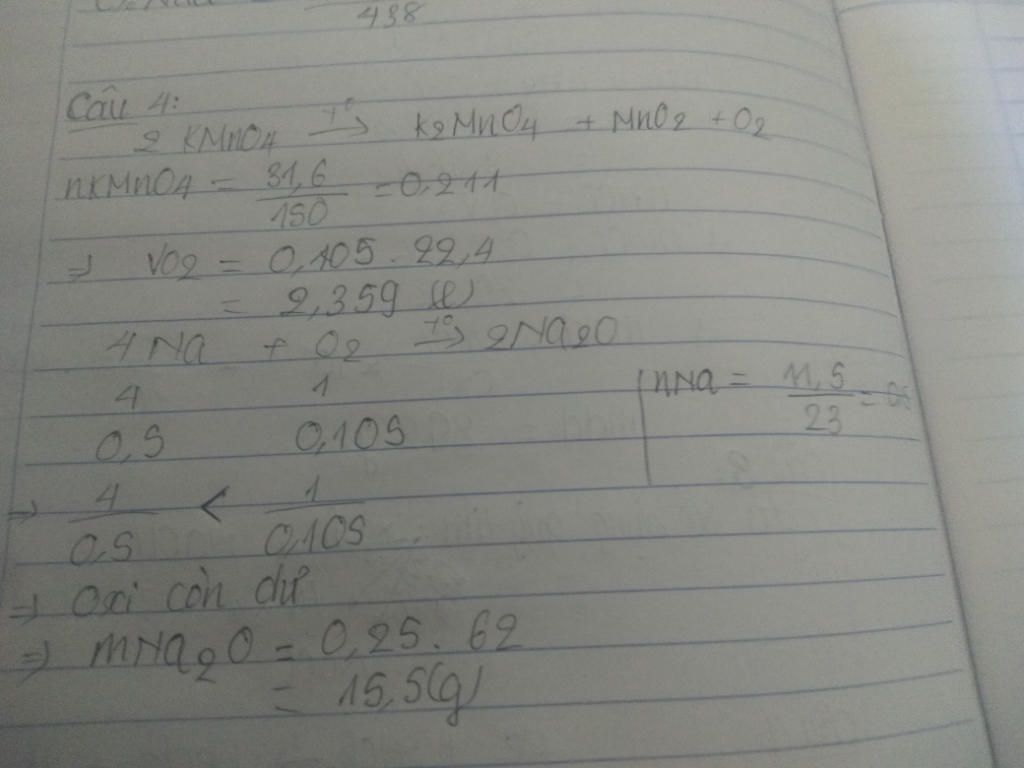 438
Câu 4:
2 KMnO4 t° → K2MnO4 + MnO2 + O2
nKMnO4 = 31,6 / 150 = 0,211
⇒ VO2 = 0,105 . 22,4
= 2,359 (l)
4Na + O2 t° → 2Na2O
4 1
0,5 0,105
nNa = 11,5 / 23 = 0,5
⇒ 4 / 0,5 < 1 / 0,105
⇒ Oxi còn dư
⇒ mNa2O = 0,25 . 62
= 15,5(g)